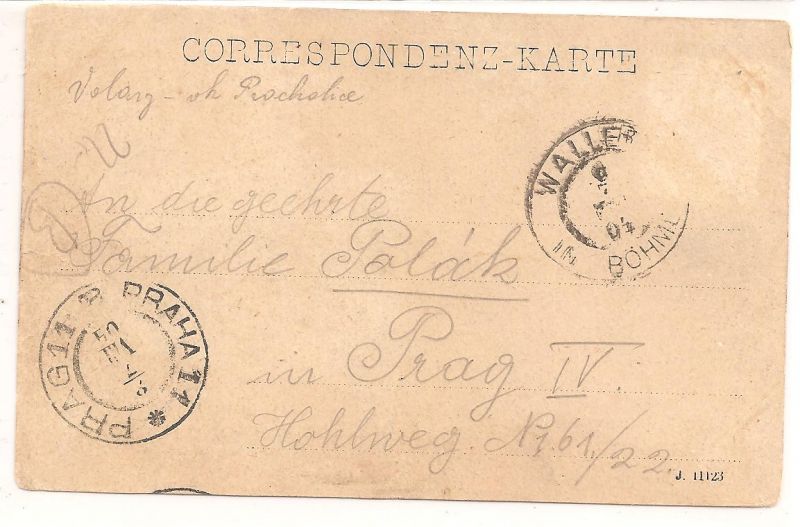 CORRESPONDENZ-KARTE
Volary - ok Prachatice
An die geehrte
Familie Polák
in Prag IV.
Hohlweg. № 61/22.
WALLER
04
IN BÖHM
PRAG 11 PRAHA 11 *
J. 11123